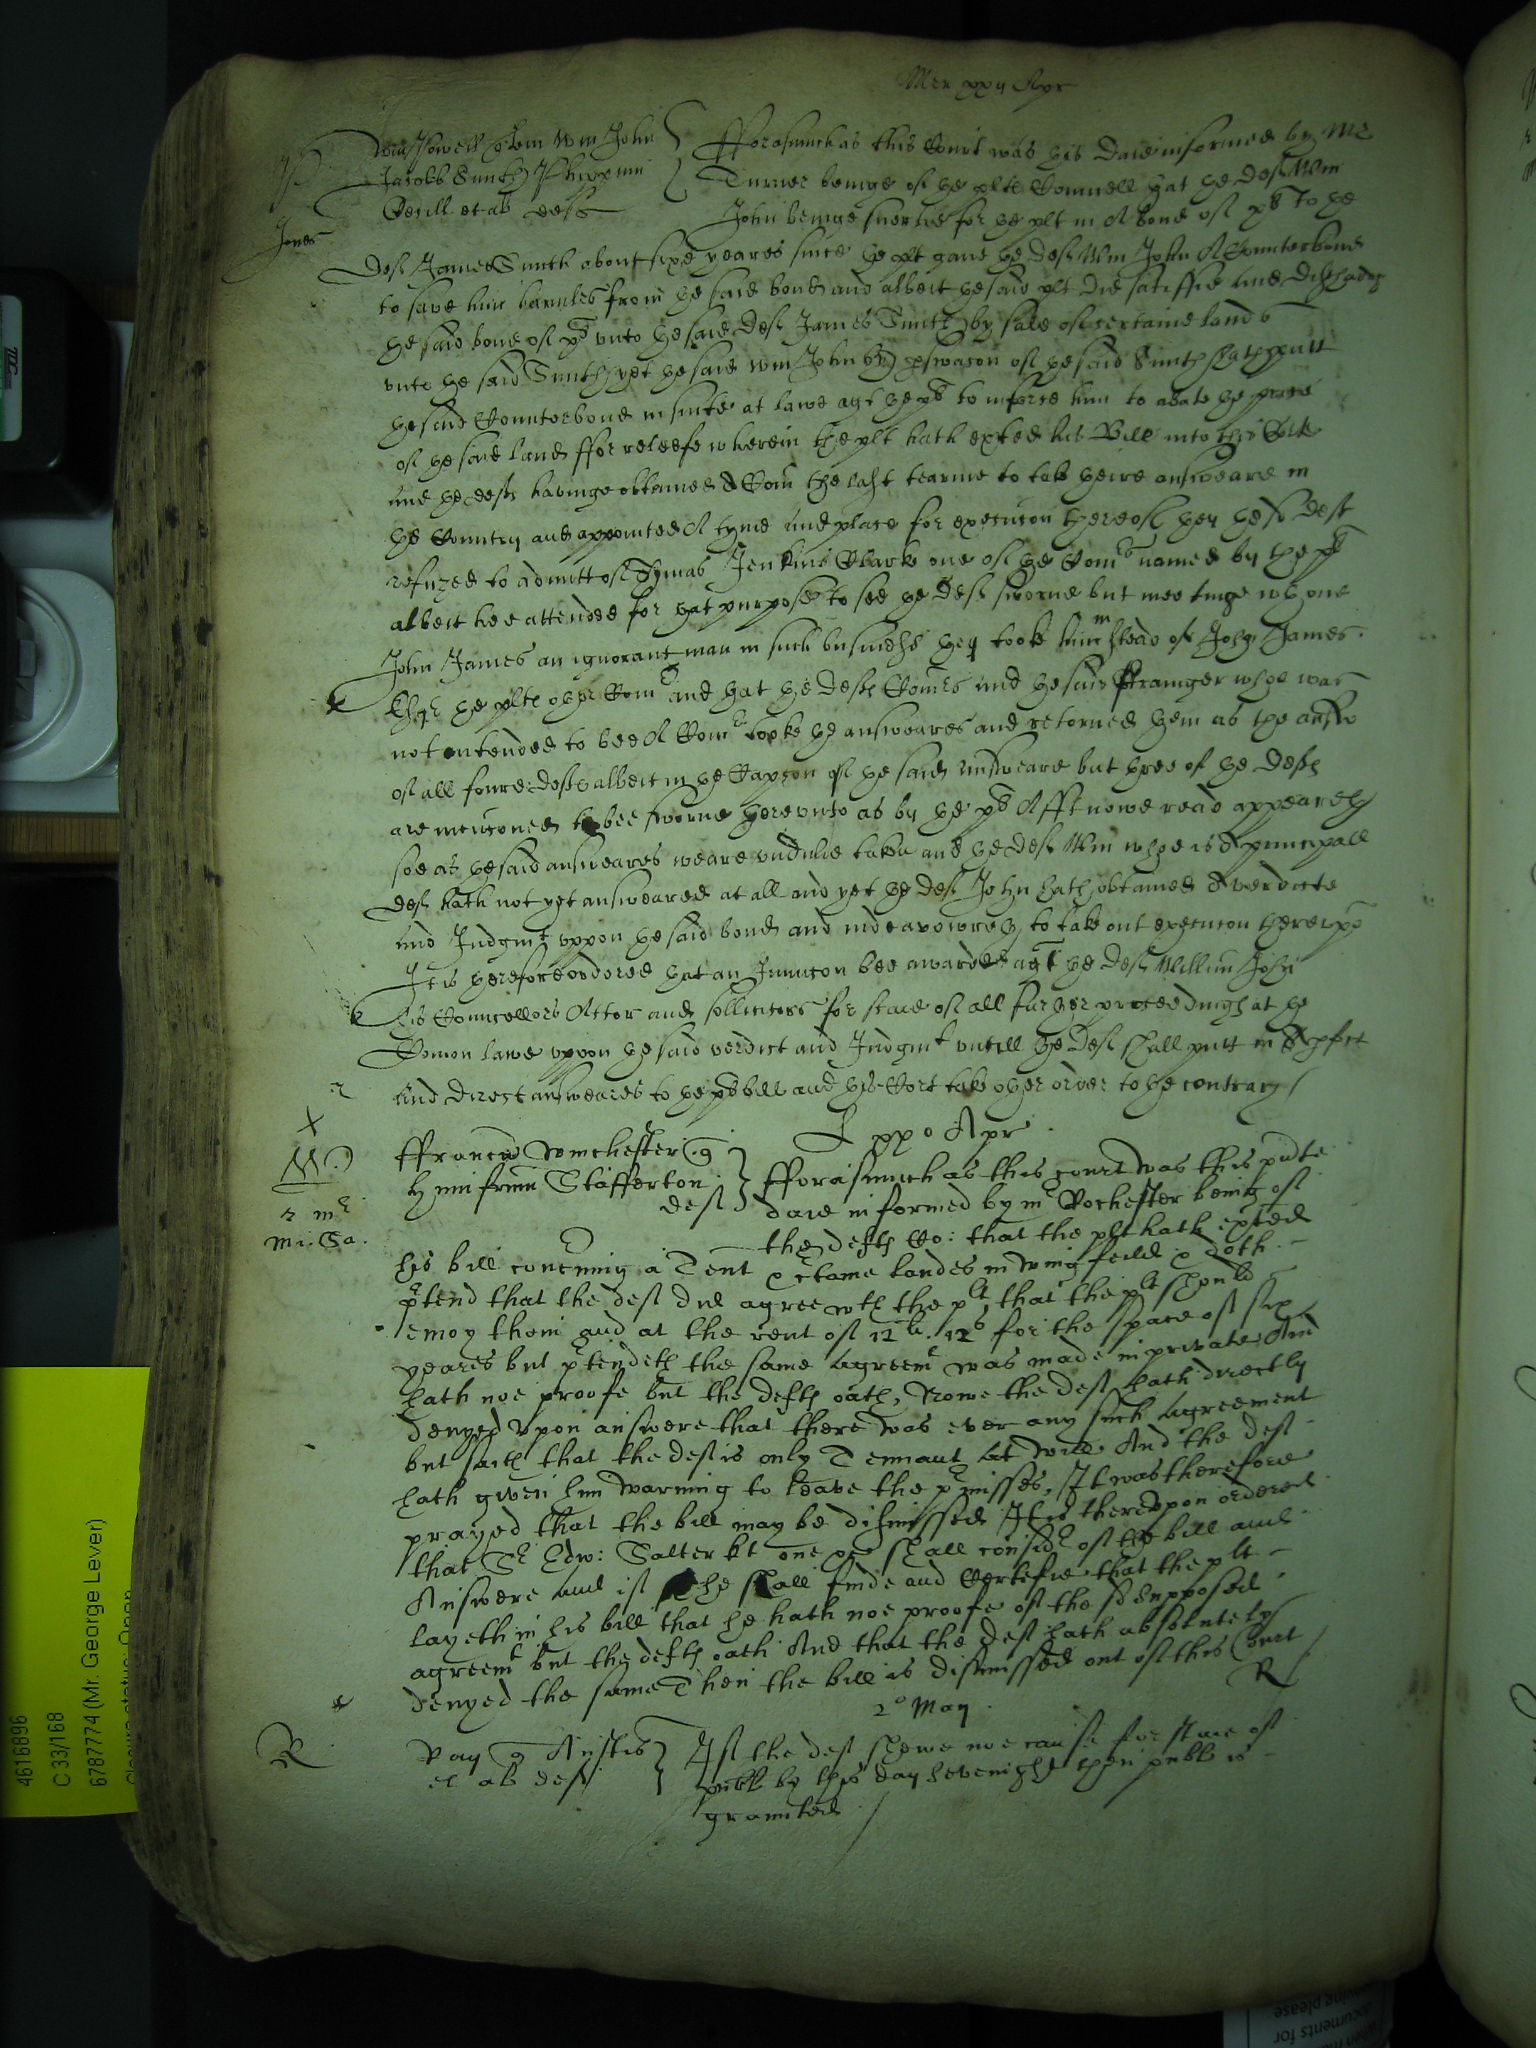 Mer xxij Apr
Powell Wm John
Jacobb Smith
et al deft
Jones
Fforasmuch as this Court was this daie informed by Mr
Turner beinge of the plts Councell that the deft Wm
John beinge suertie for the plt in A bond of to the
deft James Smith about sixe yeares since the plt gave the deft Wm John A Counterbond
to save him harmles from the said bond and albeit the said plt did satisffie and dischardg
the said bond of unto the said deft James Smith by sale of certaine lands
unto the said Smith yet the said Wm John by pswacon of the said Smith hath putt
the said Counterbond in suite at lawe agt the to inforce him to abate the price
of the said land ffor releefe wherein the plt hath exhted his Bill into this Corte
and the defts havinge obteined A Com the last tearme to take theire answeare in
the Countrey and appointed A tyme and place for execucon thereof they the sd deft
refuzed to admitt of Thomas Jenkins Clarke one of the Comrs named by the
albeit hee attended for that purpose to see the defts sworne but meetinge wth one
John James an ignorant man in such busines they tooke him in stead of John James
the plts other Comr and that the defts Comrs and the said stranger whoe was
not intended to bee A Comr tooke the answeares and retorned them as the answ
of all foure defts albeit in the Capcon of the said answeare but three of the defts
are mencioned to bee sworne thereunto as by the Afft nowe read appeareth
soe as the said answeares weare undulie taken and the deft Wm whoe is A principall
deft hath not yet answeared at all and yet the deft John hath obtained A verdicte
and Judgmt uppon the said bond and indeavoureth to take out execucon thereuppo
It is therefore ordered that an Iniuncon bee awarded agt the deft William John
his Councellors Attor and sollicitors for staie of all further proceedings at the
Comon lawe uppon the said verdict and Judgmt untill the deft shall putt in A pfect
and direct answeares to the bill and this Cort take other order to the contrary
x
ppo Apr
M
Ffrancis Winchester
Stafferton
deft
Fforasmuch as this court was this pnte
daie informed by mr Rochester being of
r mr
Mr: Sa.
the defts Co: that the plt hath exhted
his bill concerning a Tent & ctaine landes in Wingfeild & doth
ptend that the deft did agree wth the plt that the plt should
enioy them and at the rent of 12li. 12s for the space of six
yeares but ptendeth the same agreemt was made in private And
hath noe proofe but the defts oath, Nowe the deft hath directly
denyed upon answere that there was ever any such agreement
but saith that the deft is only Tennant at will And the deft
hath given him warning to leave the pmisses, It was therefore
prayed that the bill may be dismissed It is thereupon ordered
that Sr Edw: Salter kt one &c shall consider of the bill and
Answere and if he shall finde and Certefie that the plt
layeth in his bill that he hath noe proofe of the sd supposed
agreemt but the defts oath And that the deft hath absolutely
denyed the same Then the bill is dismissed out of this Court
R
2o May
R
Vay Anstis
et al deft
If the deft shewe noe cause for staie of
publ by this day sevenight then publ is
graunted
4616896
C 33/168
6787774 (Mr. George Lever)
Closure status: Open